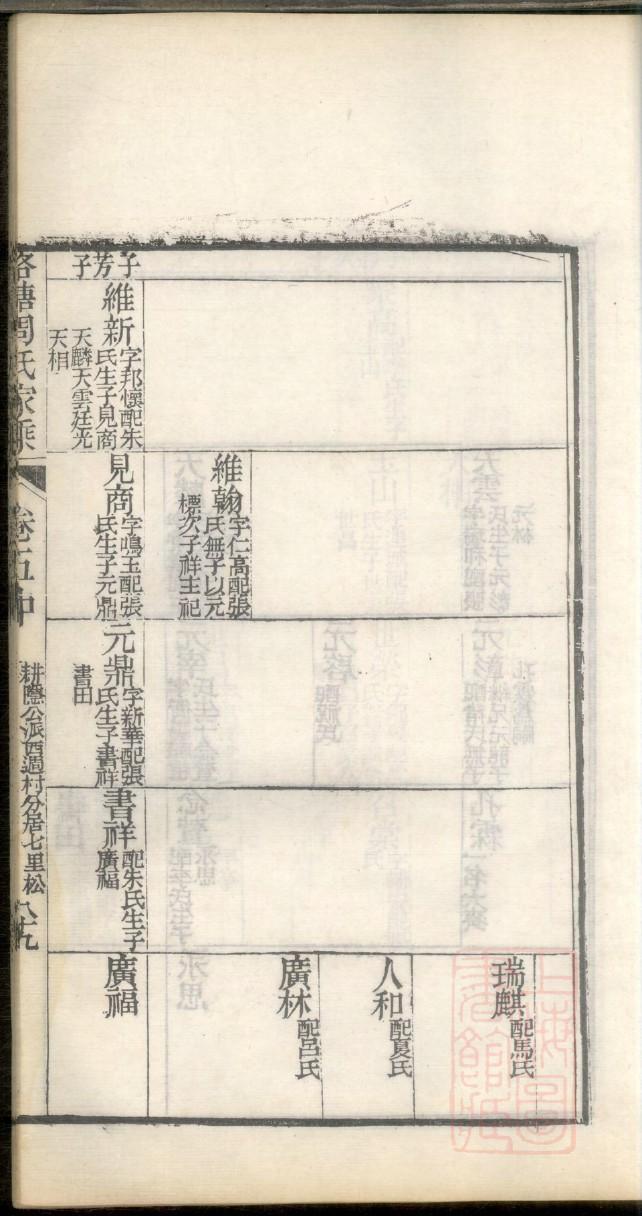 瑞麒配馬氏
人和配夏氏
廣林配呂氏
維翰字仁高配張
氏無子以元
標次子祥主祀
子芳子
維新字邦懷配朱
氏生子見商
天麟天雲廷光
天相
見商字鳴玉配張
氏生子元鼎
元鼎字新華配張
氏生子書祥
書田
書祥配朱氏生子
廣福
廣福
塘周氏家乘
卷五中
耕隱公派酉過村分居七里松